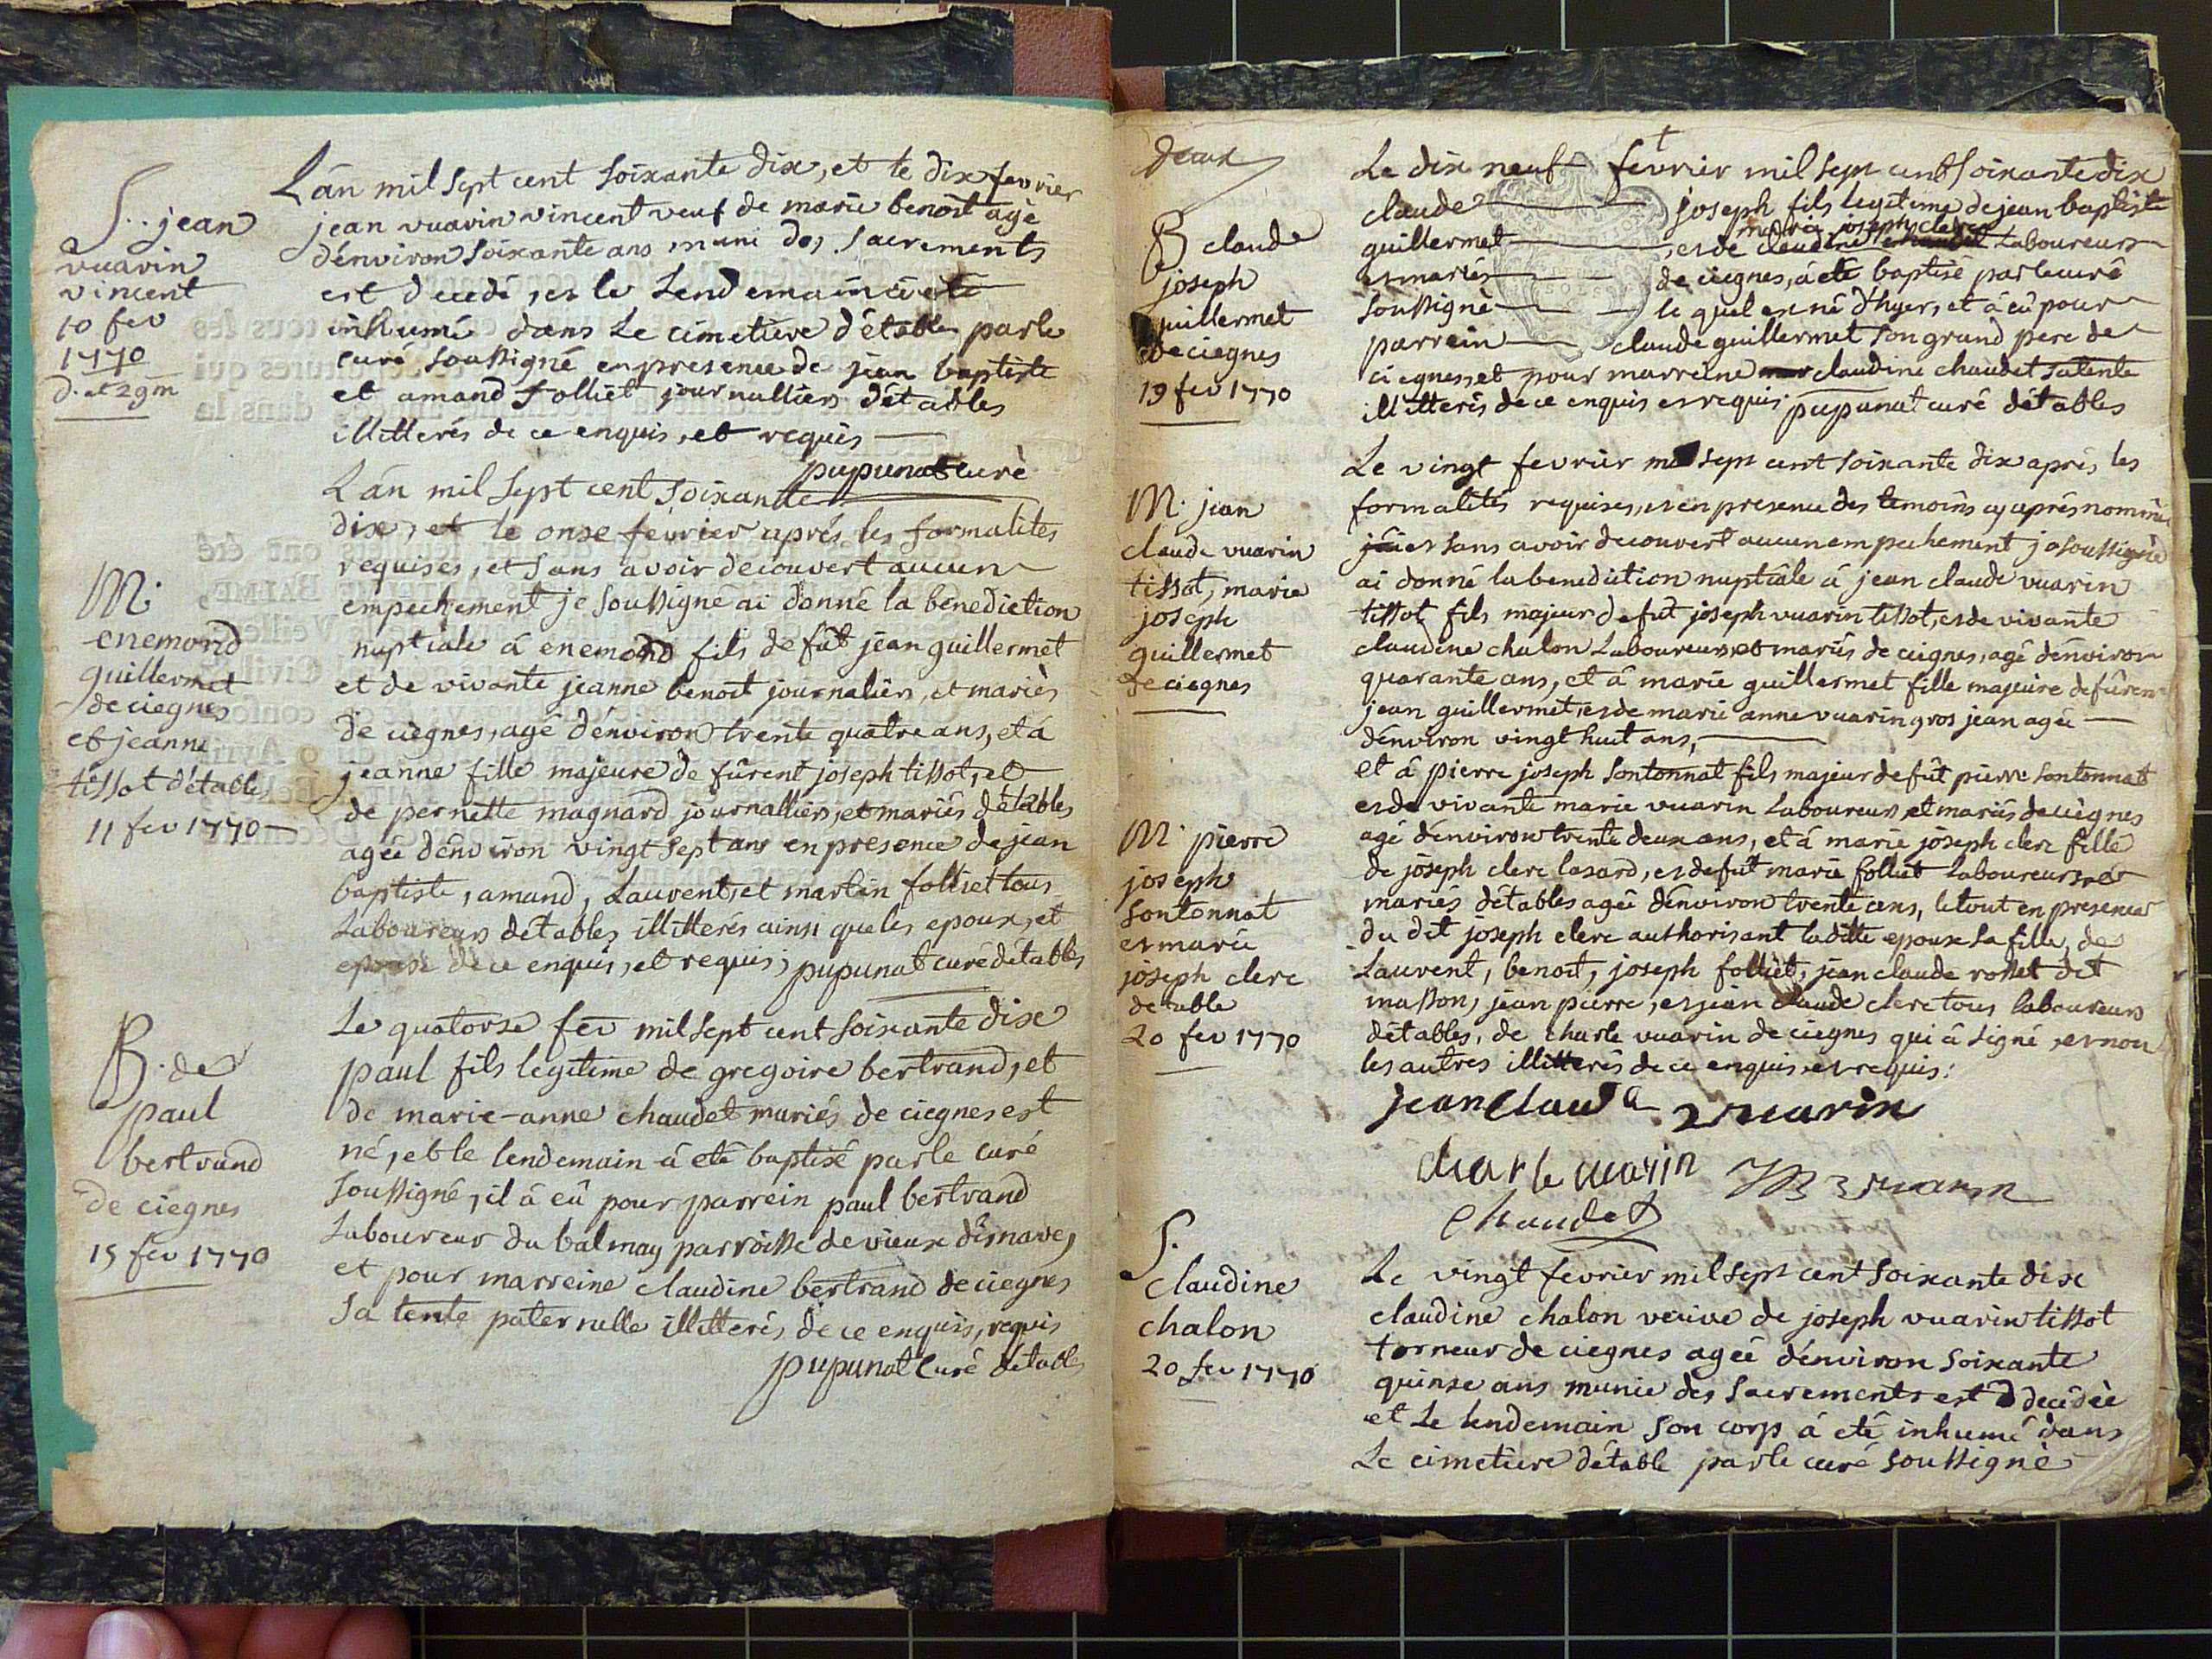 S. jean
vuarin
vincent
10 fev
1770
L'an mil sept cent soixante dix, et le dix fevrier
jean vuarin vincent veuf de marie benoit agé
d'énviron soixante ans muni des sacrements
est decedé, et le Lendemain à été
inhumé dans Le cimetiere d'étables par le
curé soussigné en presence de jean baptiste
et amand folliet journalliers d'étables
illitterés de ce enquis, et requis
pupunat curé
M.
enemond
guillermet
de ciegnes
et jeanne
tissot d'étables
11 fev 1770
L'an mil sept cent soixante
dix, et le onse fevrier aprés les formalités
requises, et sans avoir decouvert aucun
empechement je soussigné ai donné la benediction
nuptiale á enemond fils de fût jean guillermet
et de vivante jeanne benoit journaliers, et mariés
de ciegnes, agé d'énviron trente quatre ans, et á
jeanne fille majeure de fûrent joseph tissot, et
de pernette magnard journalliers, et mariés d'étables
agée d'énviron vingt sept ans en presence de jean
baptiste, amand, Laurent, et martin folliet tous
Laboureurs d'étables illitterés ainsi que les epoux, et
epouse de ce enquis, et requis; pupunat curé d'étables
B. de
paul
bertrand
de ciegnes
15 fev 1770
Le quatorse fev mil sept cent soixante dix
paul fils legitime de gregoire bertrand, et
de marie-anne chaudet mariés de ciegnes est
né, et le lendemain à eté baptisé par le curé
soussigné, il à eû pour parrein paul bertrand
Laboureur du balmay parroisse de vieux d'isnave,
et pour marreine claudine bertrand de ciegnes
sa tente paternelle illitterés de ce enquis, requis
pupunat curé d'étables
deux
B claude
joseph
guillermet
de ciegnes
19 fev 1770
Le dix neuf fevrier mil sept cent soixante dix
claude joseph fils legitime de jean baptiste
marie joseph clerc
guillermet et de claudine chaudet Laboureurs
et mariés de ciegnes, á eté baptisé par le curé
soussigné le quel est né d'hyer, et á eû pour
parrein claude guillermet son grand pere de
ciegnes, et pour marreine claudine chaudet sa tente
illitterés de ce enquis et requis. pupunat curé d'étables
M. jean
claude vuarin
tissot, marie
joseph
guillermet
de ciegnes
Le vingt fevrier mil sept cent soixante dix aprés les
formalités requises, et en presence des temoins cy aprés nommés
et sans avoir decouvert aucun empechement je soussigné
ai donné la benediction nuptiale á jean claude vuarin
tissot fils majeur de fut joseph vuarin tissot, et de vivante
claudine chalon Laboureurs, et mariés de ciegnes, agé d'énviron
quarante ans, et á marie guillermet fille majeure de fûrent
jean guillermet, et de marie anne vuarin gros jean agée
d'énviron vingt huit ans,
M. pierre
joseph
sontonnat
et marie
joseph clerc
d'etable
20 fev 1770
et á pierre joseph sontonnat fils majeur de fût pierre sontonnat
et de vivante marie vuarin Laboureurs, et mariés de ciegnes
agé d'énviron trente deux ans, et á marie joseph clerc fille
de joseph clerc lasard, et de fût marie folliet Laboureurs, et
mariés d'étables agée d'énviron trente ans, le tout en presence
du dit joseph clerc authorisant laditte epouse sa fille, de
Laurent, benoit, joseph folliet, jean claude rosset dit
masson, jean pierre, et jean claude clerc tous laboureurs
d'étables, de charle vuarin de ciegnes qui á signé, et non
les autres illitterés de ce enquis et requis:
jean claude vuarin
charle vuarin
vuarin
chaudet
S.
claudine
chalon
20 fev 1770
Le vingt fevrier mil sept cent soixante dix
claudine chalon veuve de joseph vuarin tissot
torneur de ciegnes agée d'énviron soixante
quinse ans munie des sacrements est decedée
et Le lendemain son corp á eté inhumé dans
Le cimetiere d'étable par le curé soussigné